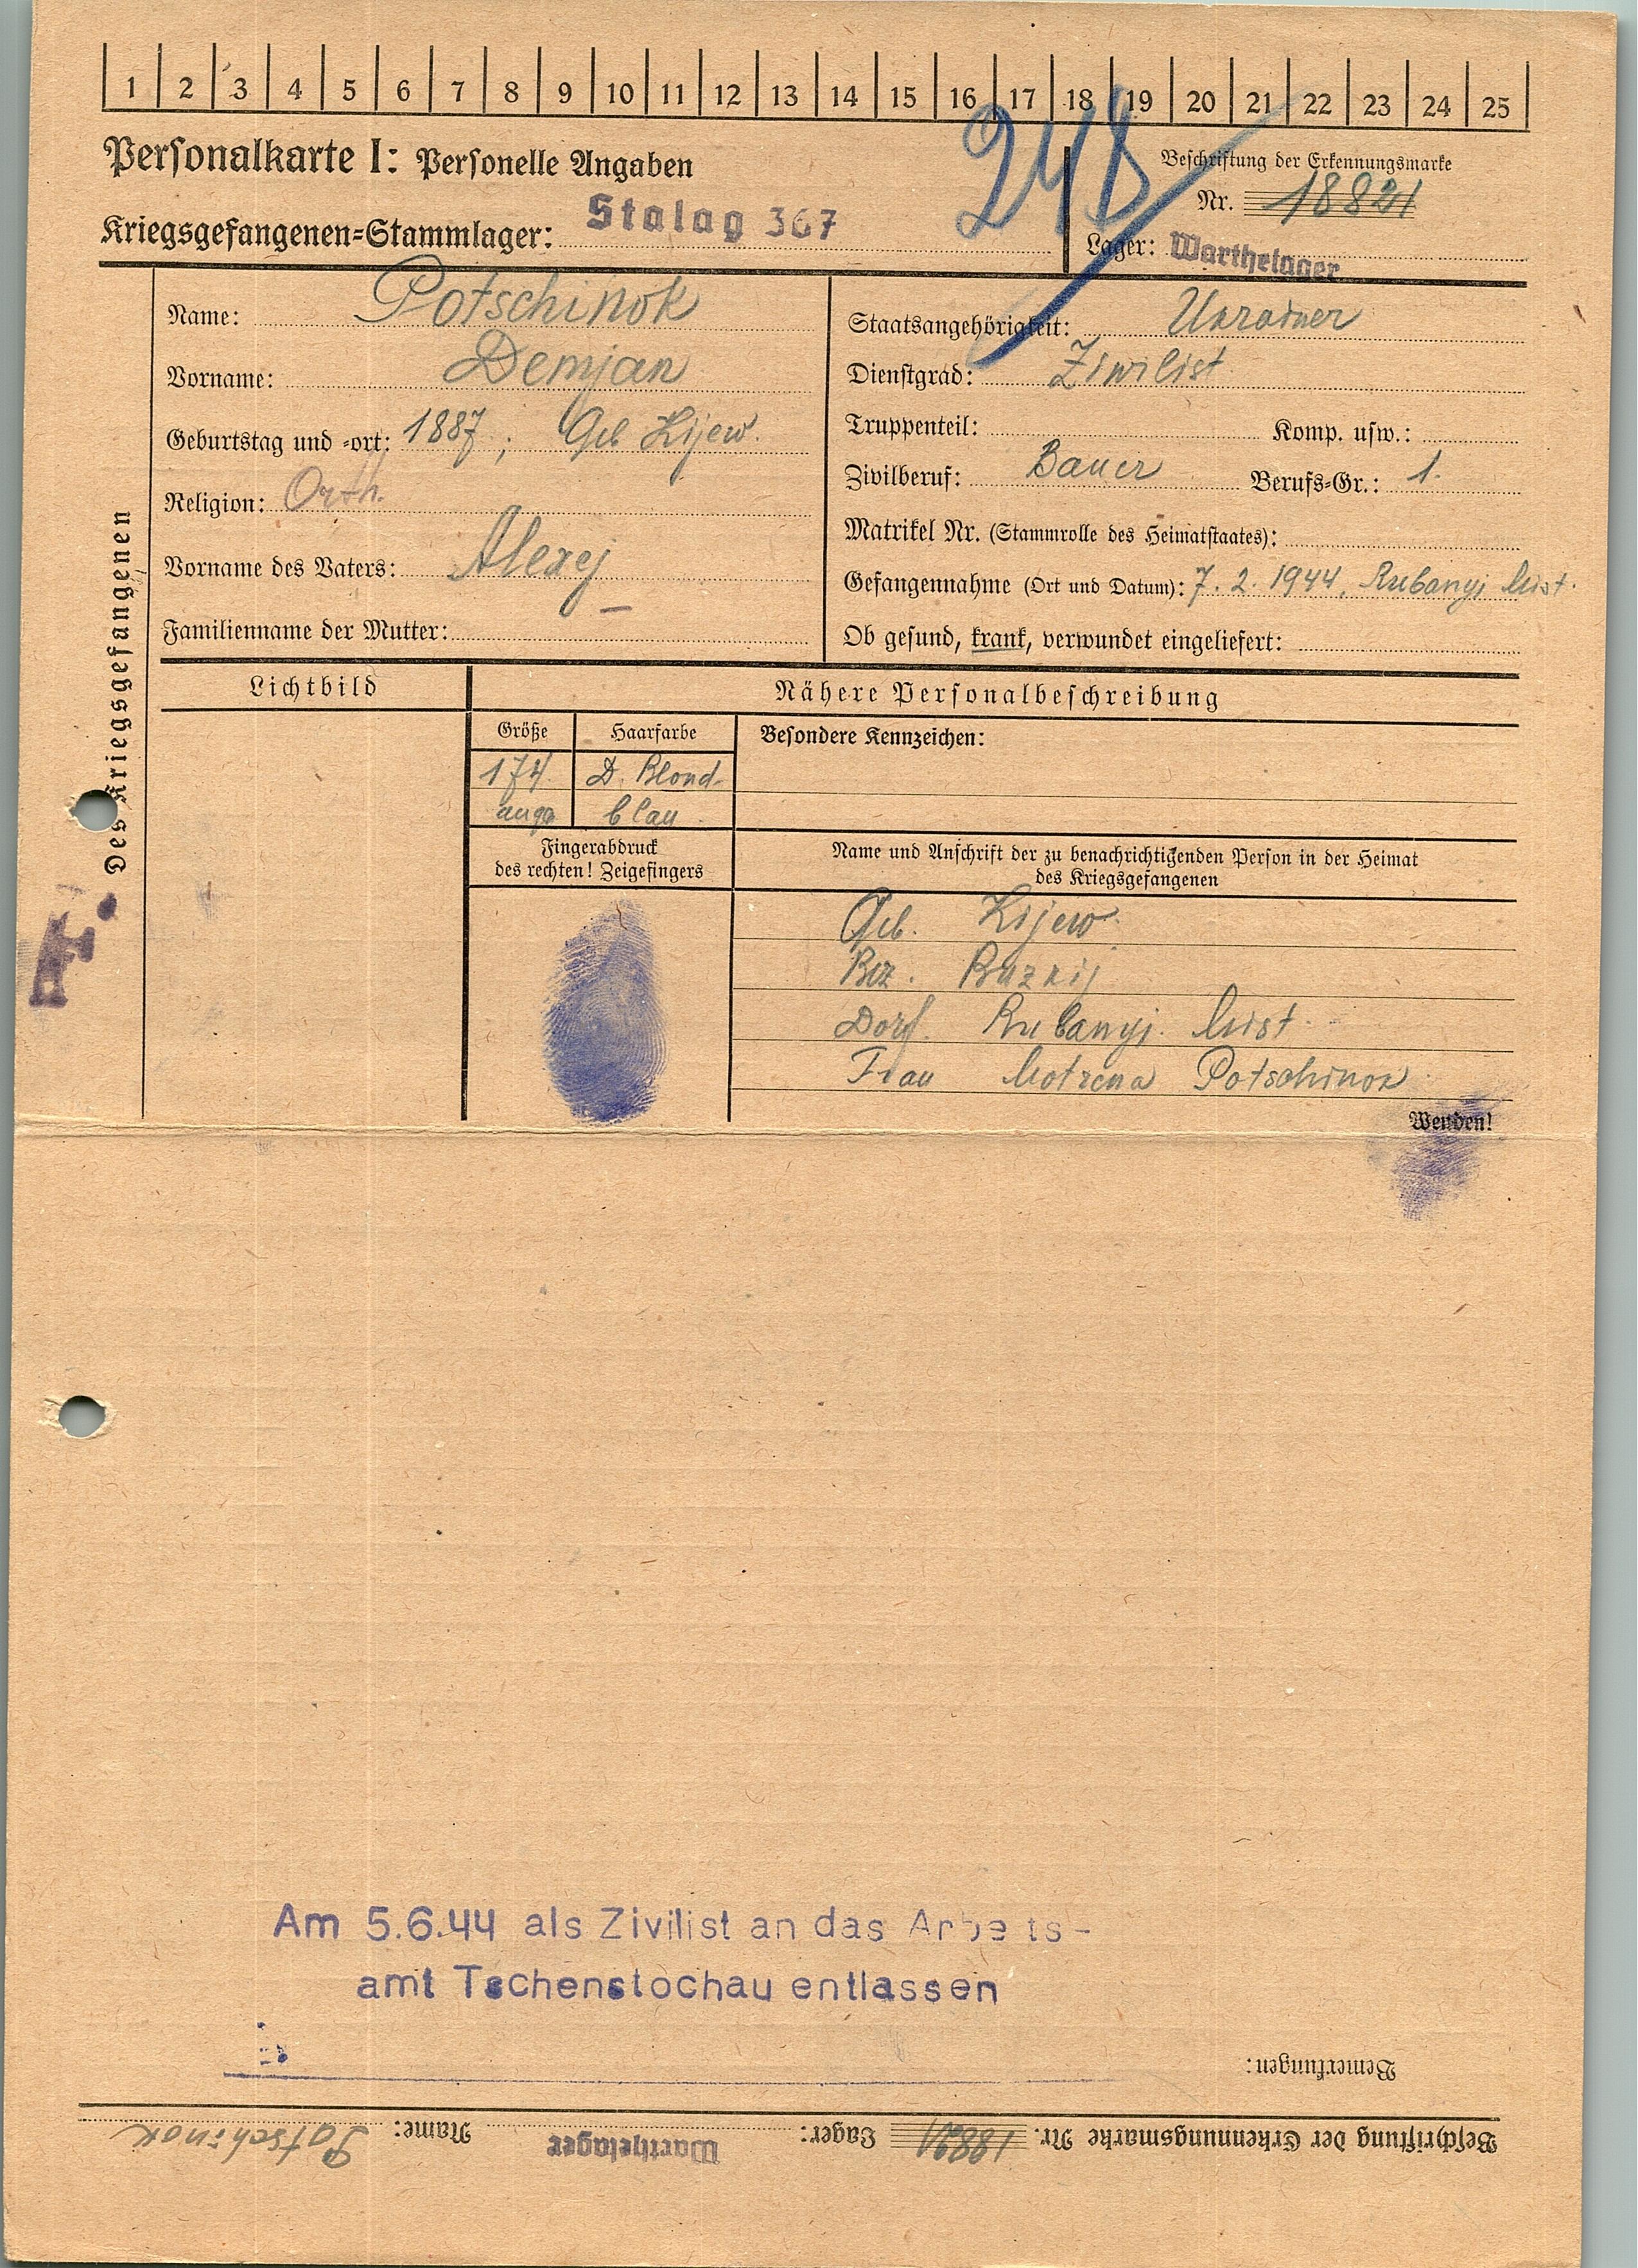 1 2 3 4 5 6 7 8 9 10 11 12 13 14 15 16 17 18 19 20 21 22 23 24 25
Personalkarte I: Personelle Angaben
Beschriftung der Erkennungsmarke
Nr. 18821
Kriegsgefangenen-Stammlager: Stalag 367
Lager: Warthelager
Des Kriegsgefangenen
Name: Potschinok
Vorname: Demjan
Geburtstag und -ort: 1887; Geb Kijew.
Religion: Orth.
Vorname des Vaters: Alexej
Familienname der Mutter:
Staatsangehörigkeit: Ukrainer
Dienstgrad: Ziwilist
Truppenteil: Komp. usw.:
Zivilberuf: Bauer Berufs-Gr.: 1.
Matrikel Nr. (Stammrolle des Heimatstaates):
Gefangennahme (Ort und Datum): 7. 2. 1944, Rubanyj Mist.
Ob gesund, krank, verwundet eingeliefert:
Lichtbild
Nähere Personalbeschreibung
Größe Haarfarbe Besondere Kennzeichen:
174. D. Blond.
auge blau.
Fingerabdruck
des rechten! Zeigefingers
Name und Anschrift der zu benachrichtigenden Person in der Heimat
des Kriegsgefangenen
Geb. Kijew.
Bez.
Dorf. Rubanyj. Mist.
Frau Motrena Potschinok
Wenden!
Am 5.6.44 als Zivilist an das Arbeits-
amt Tschenstochau entlassen
Bemerkungen:
Beschriftung der Erkennungsmarke Nr. 18821 Lager: Warthelager Name: Potschinok